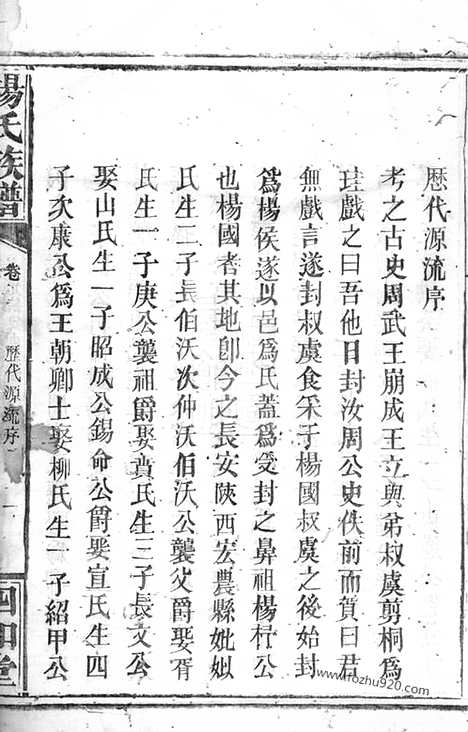 歷代源流序
考之古史周武王崩成王立與弟叔虞剪桐為
珪戲之曰吾他日封汝周公史佚前而賀曰君
無戲言遂封叔虞食采于楊國叔虞之後始封
為楊侯遂以邑為氏蓋為受封之鼻祖楊杼公
也楊國者其地卽今之長安陝西宏農縣妣姒
氏生二子長伯沃次仲沃伯沃公襲父爵娶胥
氏生一子庚公襲祖爵娶賁氏生三子長文公
娶山氏生一子昭成公錫命公爵娶宣氏生四
子次康公為王朝卿士娶柳氏生一子紹甲公
楊氏族譜
卷
歷代源流序
一
四知堂
www.fozhu920.com